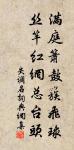 满庭箫鼓簇飞球
丝竿红网总台头
矢调名词典调集